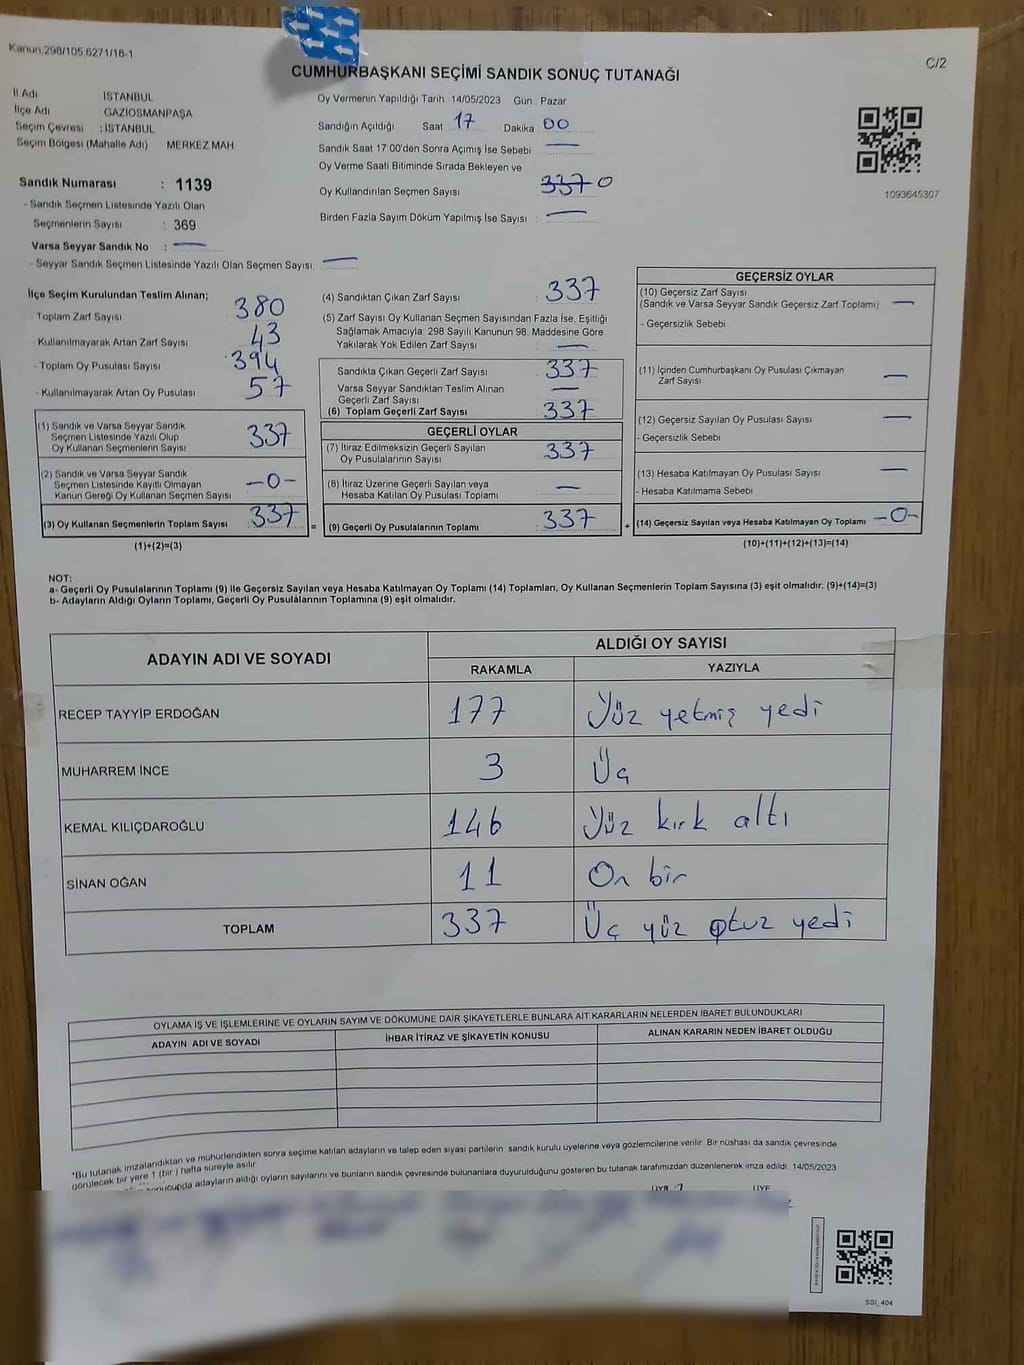 Kanun.298/105,6271/18-1
C/2
CUMHURBAŞKANI SEÇİMİ SANDIK SONUÇ TUTANAĞI
İl Adı İSTANBUL
İlçe Adı GAZİOSMANPAŞA
Seçim Çevresi : İSTANBUL
Seçim Bölgesi (Mahalle Adı) MERKEZ MAH.
Sandık Numarası : 1139
- Sandık Seçmen Listesinde Yazılı Olan
Seçmenlerin Sayısı : 369
Varsa Seyyar Sandık No : —
- Seyyar Sandık Seçmen Listesinde Yazılı Olan Seçmen Sayısı: —
Oy Vermenin Yapıldığı Tarih 14/05/2023 Gün : Pazar
Sandığın Açıldığı Saat 17 Dakika 00
Sandık Saat 17:00'den Sonra Açımış İse Sebebi —
Oy Verme Saati Bitiminde Sırada Bekleyen ve
Oy Kullandırılan Seçmen Sayısı 337 0
Birden Fazla Sayım Döküm Yapılmış İse Sayısı : —
1093645307
İlçe Seçim Kurulundan Teslim Alınan;
- Toplam Zarf Sayısı 380
- Kullanılmayarak Artan Zarf Sayısı 43
- Toplam Oy Pusulası Sayısı 394
- Kullanılmayarak Artan Oy Pusulası 57
(1) Sandık ve Varsa Seyyar Sandık
Seçmen Listesinde Yazılı Olup
Oy Kullanan Seçmenlerin Sayısı 337
(2) Sandık ve Varsa Seyyar Sandık
Seçmen Listesinde Kayıtlı Olmayan
Kanun Gereği Oy Kullanan Seçmen Sayısı -0-
(3) Oy Kullanan Seçmenlerin Toplam Sayısı 337 =
(1)+(2)=(3)
(4) Sandıktan Çıkan Zarf Sayısı : 337
(5) Zarf Sayısı Oy Kullanan Seçmen Sayısından Fazla İse, Eşitliği
Sağlamak Amacıyla, 298 Sayılı Kanunun 98. Maddesine Göre
Yakılarak Yok Edilen Zarf Sayısı : —
Sandıkla Çıkan Geçerli Zarf Sayısı : 337
Varsa Seyyar Sandıktan Teslim Alınan
Geçerli Zarf Sayısı —
(6) Toplam Geçerli Zarf Sayısı : 337
GEÇERLİ OYLAR
(7) İtiraz Edilmeksizin Geçerli Sayılan
Oy Pusulalarının Sayısı 337
(8) İtiraz Üzerine Geçerli Sayılan veya
Hesaba Katılan Oy Pusulası Toplamı —
(9) Geçerli Oy Pusulalarının Toplamı : 337 +
GEÇERSİZ OYLAR
(10) Geçersiz Zarf Sayısı
(Sandık ve Varsa Seyyar Sandık Geçersiz Zarf Toplamı) —
- Geçersizlik Sebebi
(11) İçinden Cumhurbaşkanı Oy Pusulası Çıkmayan
Zarf Sayısı —
(12) Geçersiz Sayılan Oy Pusulası Sayısı —
- Geçersizlik Sebebi
(13) Hesaba Katılmayan Oy Pusulası Sayısı —
- Hesaba Katılmama Sebebi
(14) Geçersiz Sayılan veya Hesaba Katılmayan Oy Toplamı -0-
(10)+(11)+(12)+(13)=(14)
NOT:
a- Geçerli Oy Pusulalarının Toplamı (9) ile Geçersiz Sayılan veya Hesaba Katılmayan Oy Toplamı (14) Toplamları, Oy Kullanan Seçmenlerin Toplam Sayısına (3) eşit olmalıdır. (9)+(14)=(3)
b- Adayların Aldığı Oyların Toplamı, Geçerli Oy Pusulalarının Toplamına (9) eşit olmalıdır.
ADAYIN ADI VE SOYADI ALDIĞI OY SAYISI
RAKAMLA YAZIYLA
RECEP TAYYİP ERDOĞAN 177 Yüz yetmiş yedi
MUHARREM İNCE 3 Üç
KEMAL KILIÇDAROĞLU 146 Yüz kırk altı
SİNAN OĞAN 11 On bir
TOPLAM 337 Üç yüz otuz yedi
OYLAMA İŞ VE İŞLEMLERİNE VE OYLARIN SAYIM VE DÖKÜMÜNE DAİR ŞİKAYETLERLE BUNLARA AİT KARARLARIN NELERDEN İBARET BULUNDUKLARI
ADAYIN ADI VE SOYADI İHBAR İTİRAZ VE ŞİKAYETİN KONUSU ALINAN KARARIN NEDEN İBARET OLDUĞU
*Bu tutanak imzalandıktan ve mühürlendikten sonra seçime katılan adayların ve talep eden siyasi partilerin sandık kurulu üyelerine veya gözlemcilerine verilir. Bir nüshası da sandık çevresinde
görülecek bir yere 1 (bir) hafta süreyle asılır.
adayların aldığı oyların sayılarını ve bunların sandık çevresinde bulunanlara duyurulduğunu gösteren bu tutanak tarafımızdan düzenlenerek imza edildi. 14/05/2023
SSİ_404